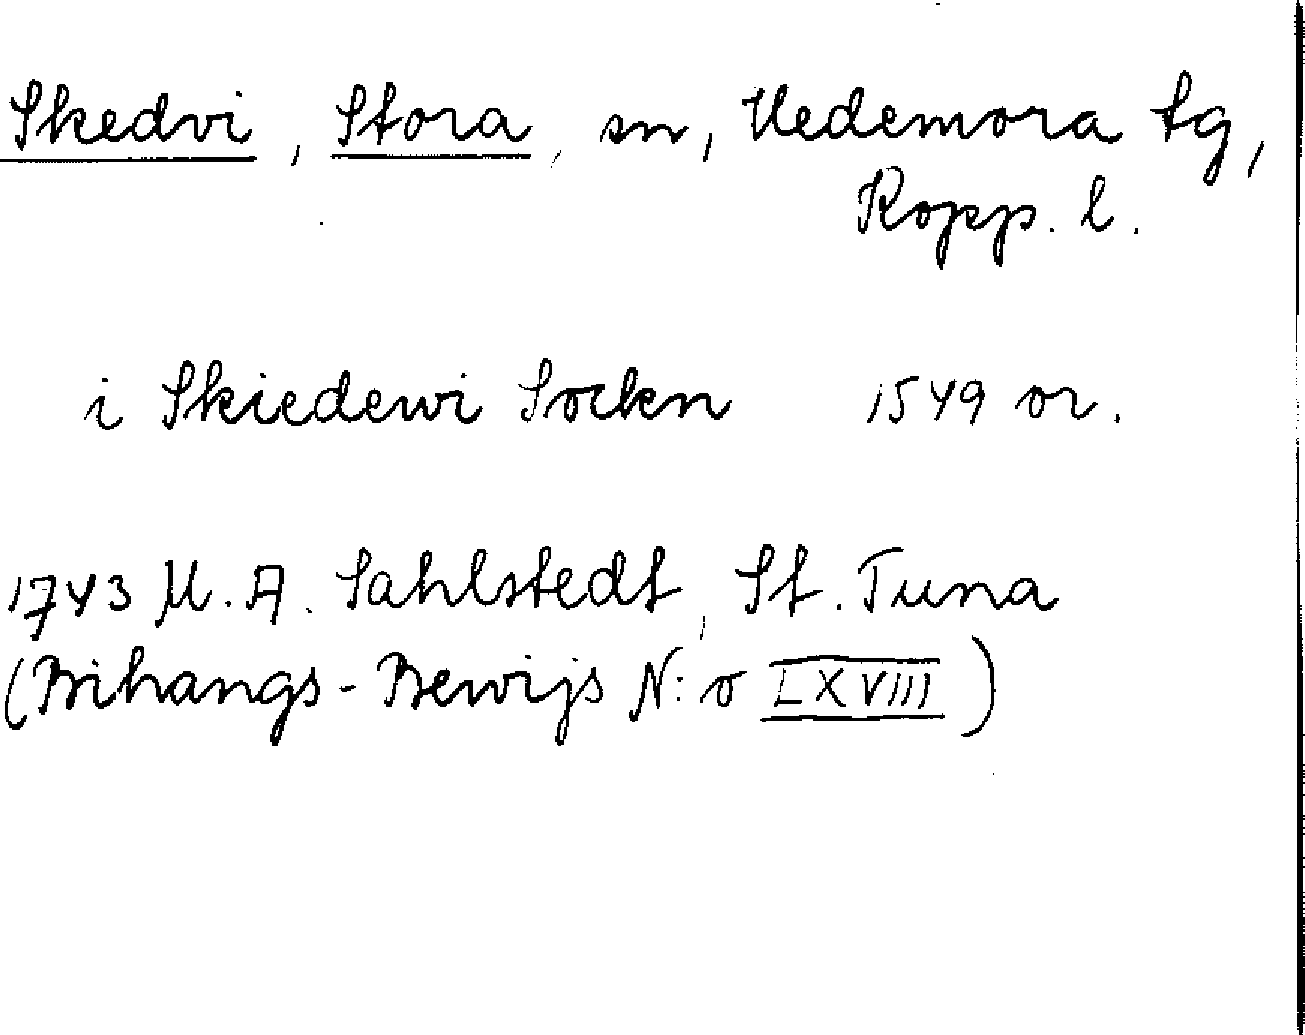 Skedvi, Stora, sn, Vedemora tg,
Kopp. l.
i Skiedewi Sockn 1549 or.
1743 M. A. Sahlstedt, St. Tuna
(Bihangs-Bewijs N:o LXVIII)